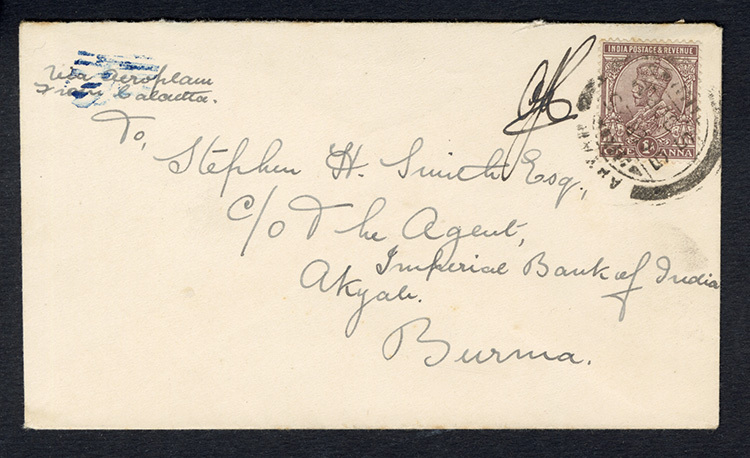 Via Aeroplain
From Calcutta.
INDIA POSTAGE & REVENUE
ONE ANNA
To,
Stephen H. Smith Esq.,
C/o The Agent,
Imperial Bank of India
Akyab.
Burma.